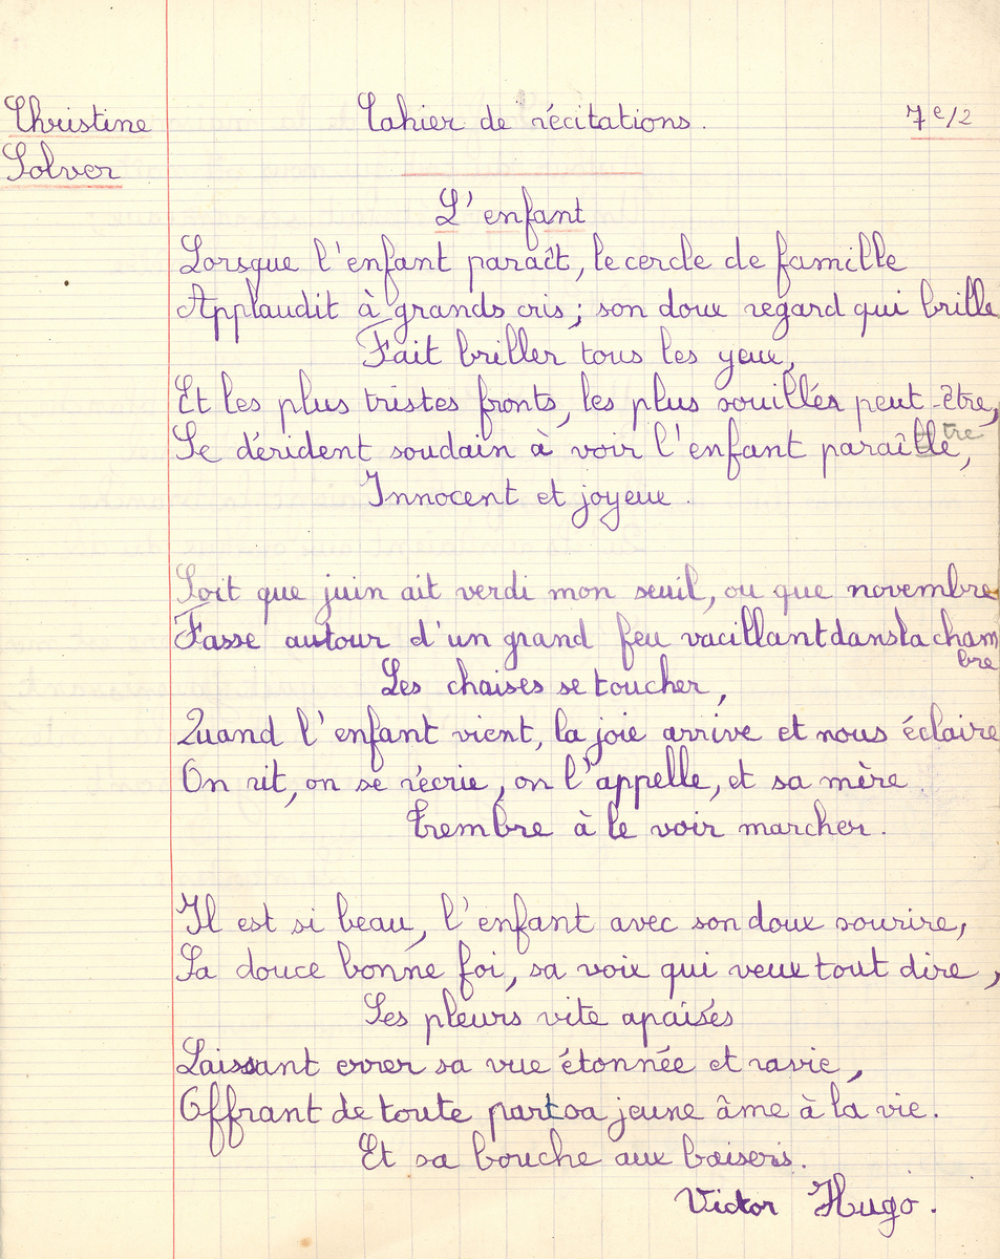 Christine Cahier de récitations. 7e/2
Solver
L'enfant
Lorsque l'enfant paraît, le cercle de famille
Applaudit à grands cris ; son doux regard qui brille
Fait briller tous les yeux,
Et les plus tristes fronts, les plus souillés peut-être,
Se dérident soudain à voir l'enfant paraître,
Innocent et joyeux.
Soit que juin ait verdi mon seuil, ou que novembre
Fasse autour d'un grand feu vacillant dans la cham
bre
Les chaises se toucher,
Quand l'enfant vient, la joie arrive et nous éclaire
On rit, on se récrie, on l'appelle, et sa mère.
Trembre à le voir marcher.
Il est si beau, l'enfant avec son doux sourire,
Sa douce bonne foi, sa voix qui veux tout dire,
Ses pleurs vite apaisés
Laissant errer sa vue étonnée et ravie,
Offrant de toute part sa jeune âme à la vie.
Et sa bouche aux baisers.
Victor Hugo.